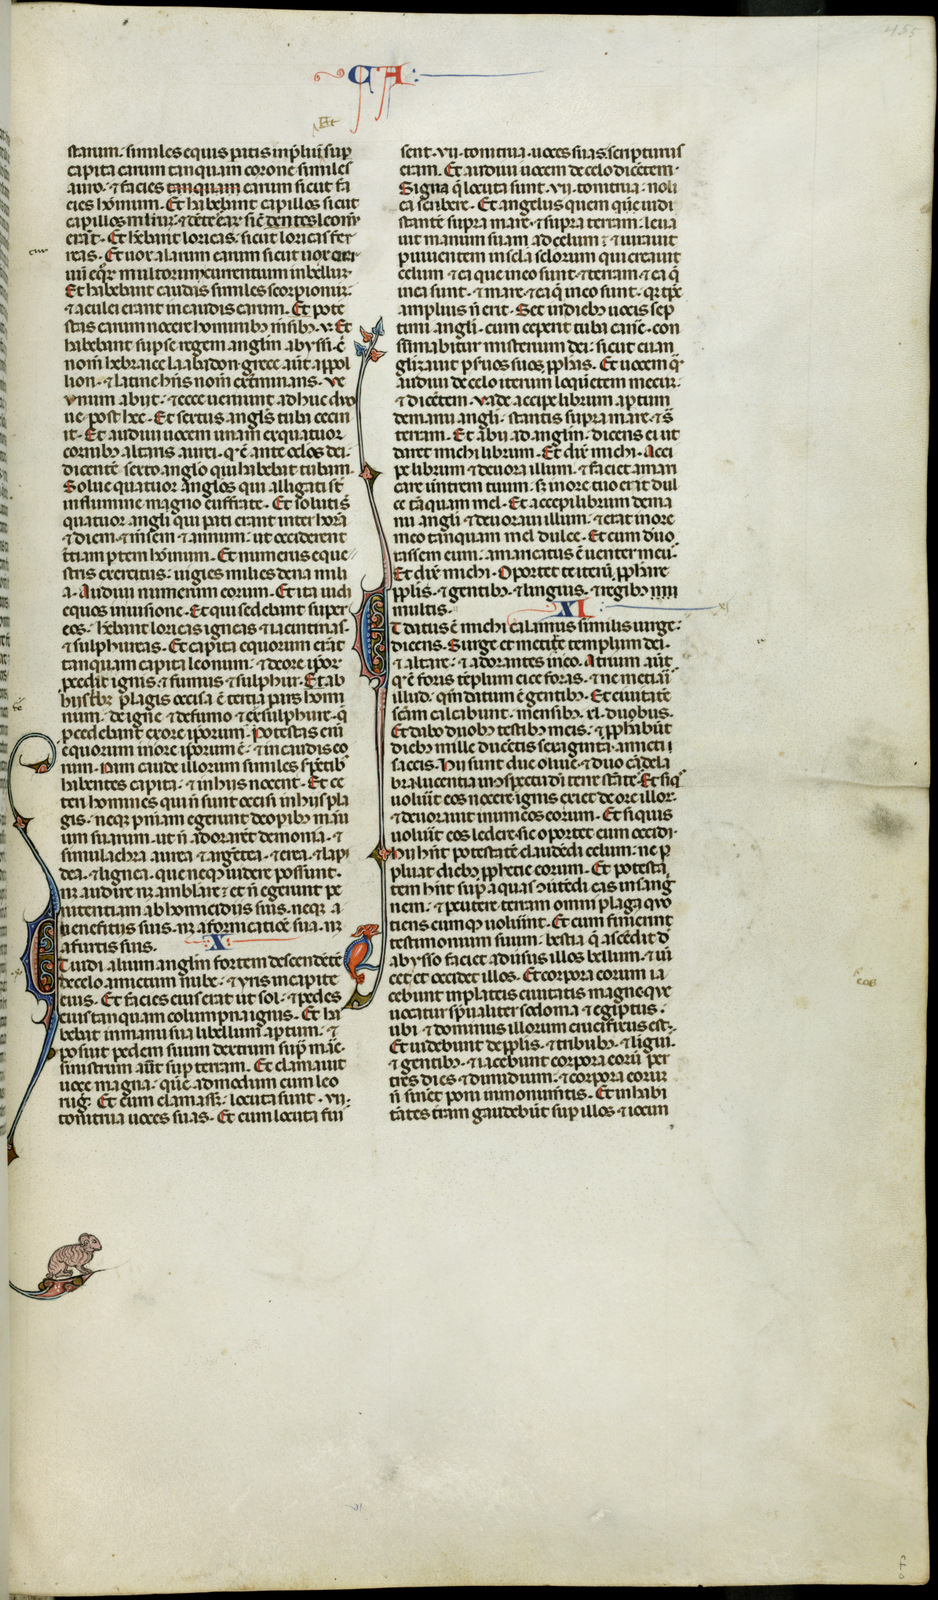 CA
starum. similes equis p̄atis in p̄liū. ⁊ suꝑ
capita earum tanquam corone similes
auro. ⁊ facies tanquam earum sicut fa
cies hōinum. Et habebant capillos sicut
capillos mulieꝝ. ⁊ dētes eaꝝ sic̄ dentes leonū
erāt. Et h̄ebant loricas. sicut loricas fer
reas. Et uox alarum earum sicut uox curr
uū eqoꝝ multorum currentium in bellum.
Et habebant caudas similes scorpionum.
⁊ aculei erant in caudis earum. Et pote
stas earum nocere hominibꝫ m̄sibꝫ .v. Et
habebant sup se regem angl̄m abyssi. c̄
nom̄ hebraice laabadon. grece aut̄ appol
lion. ⁊ latine h̄ns nom̄ ext̄minans. ve
vnum abijt. ⁊ ecce ueniunt adhuc duo
ue post hec. Et sextus angl̄s tuba cecin
it. Et audiui uocem unam ex quatuor
cornibꝫ altaris aurei. q̄ ē ante oc̄los dei.
dicentē sexto angl̄o qui habebat tubam.
Solue quatuor angl̄os qui alligati st̄
in flumine magno euffrate. Et soluti s̄
quatuor angli qui p̄ati erant in horā
⁊ diem. ⁊ m̄sem ⁊ annum. ut occiderent
t̄tiam ꝑtem hōinum. Et numerus eque
stris exercitus. uigies milies dena mili
a. Audiui numerum eorum. Et ita uidi
equos in uisione. Et qui sedebant super
eos. h̄ebant loricas igneas ⁊ iacintinas
⁊ sulphureas. Et capita equorum erāt
tanquam capita leonum. ⁊ de ore ip̄oꝝ
p̄cedit ignis. ⁊ fumus ⁊ sulphur. Et ab
hijs tbꝫ plagis occisa ē tertia pars homi
num. de igne ⁊ de fumo ⁊ ex sulphure. q̄
p̄cedebant ex ore ip̄orum. Potestas eni
equorum in ore ip̄orum ē. ⁊ in caudis eo
rum. Nam caude illorum similes sp̄etibꝫ
habentes capita. ⁊ in hijs nocent. Et ce
teri homines qui n̄ sunt occisi in hijs pla
gis. neqꝫ p̄niam egerunt de opibꝫ manu
um suarum. ut n̄ adorarēt demonia. ⁊
simulachra aurea ⁊ argētea. ⁊ erea. ⁊ lapi
dea. ⁊ lignea. que neqꝫ uidere possunt.
nꝫ audire nꝫ amblare. et n̄ egerunt pe
nitentiam ab homicidijs suis. neqꝫ a
ueneficijs suis. nꝫ a fornicatiōe sua. nꝫ
a furtis suis.
X
Et uidi alium angl̄m fortem descendētē
de celo amictum nube. ⁊ yris in capite
eius. Et facies eius erat ut sol. ⁊ pedes
eius tanquam columpna ignis. Et ha
bebat in manu sua libellum aptum. ⁊
posuit pedem suum dextrum sup̄ mare.
sinistrum aūt sup̄ terram. Et clamauit
uoce magna. quē admodum cum leo
rugit. Et cum clamasset. locuta sunt .vii.
tonitrua uoces suas. Et cum locuta fui
sent .vii. tonitrua. uoces suas. scripturus
eram. Et audiui uocem de celo dicētem.
Signa q̄ locuta sunt .vii. tonitrua. noli
ea scribere. Et angelus quem que uidi
stantē supra mare. ⁊ supra terram. leua
uit manum suam ad celum. ⁊ iurauit
p uiuentem in scl̄a sclorum qui creauit
celum ⁊ ea que in eo sunt. ⁊ terram ⁊ ea q̄
in ea sunt. ⁊ mare ⁊ ea q̄ in eo sunt. qꝛ tp̄s
amplius n̄ erit. Set in diebꝫ uocis sep
timi angli. cum ceperit tuba canē. con
sūmabitur misterium dei. sicut euan
glizauit ꝑ suos suos pphās. Et uocem q̄
audiui de celo iterum loquētem mecum
⁊ dicētem. Vade accipe librum aptum
de manu angli. stantis supra mare. ⁊ sᵘ
terram. Et abij ad angl̄m. dicens ei ut
daret michi librum. Et dix̄ michi. Acci
pe librum ⁊ deuora illum. ⁊ faciet aman
care uentrem tuum. sꝫ in ore tuo erit dul
ce tāquam mel. Et accepi librum de ma
nu angli ⁊ deuoraui illum. ⁊ erat in ore
meo tanquam mel dulce. Et cum deuo
rassem eum. amaricatus ē uenter meus.
Et dix̄ michi. Oportet te iterū pphāre
pplis. ⁊ gentibꝫ. ⁊ linguis. ⁊ regibꝫ
multis.
XI
Et datus ē michi calamus similis uirge.
dicens. Surge et metire templum dei.
⁊ altare. ⁊ adorantes in eo. Atrium aūt
q̄ ē foris templum eice foras. ⁊ ne metiaris
illud. qm̄ datum ē gentibꝫ. Et ciuitatē
scām calcabunt. mensibꝫ .xl. duobus.
Et dabo duobꝫ testibꝫ meis. ⁊ pphabūt
diebꝫ mille ducētis sexaginta. amicti
saccis. Hij sunt due oliue. ⁊ duo cādela
bra lucentia in cspectu dn̄i terre stātes. Et siqs̄
uoluīt eos nocere. ignis exiet de ore illoꝝ.
⁊ deuorauit inimicos eorum. Et si quis
uoluīt eos ledere. sic oportet eum occidi.
Hij h̄nt potestatē claudēdi celum. ne p
pluat diebꝫ pphetie eorum. Et potesta
tem h̄nt sup̄ aquas cūtēdi eas in sang
nem. ⁊ pcutere terram omni plaga quo
tiens cumqꝫ uoluīint. Et cum finierint
testimonium suum. bestia q̄ ascēdit d̄
abysso faciet aduersus illos bellum. ⁊ ui
cet et occidet illos. Et corpora eorum ia
cebunt in plateis ciuitatis magne. que
uocatur sp̄ualiter sodoma ⁊ egiptus.
ubi ⁊ dominus illorum crucifixus est.
Et uidebunt de pplis. ⁊ tribubꝫ. ⁊ lingu
⁊ gentibꝫ. ⁊ iacebunt corpora eorū per
tres dies ⁊ dimidium. ⁊ corpora eorum
n̄ sinēt poni in monumētis. Et inhabi
tātes terram gaudebūt sup illos ⁊ iocun